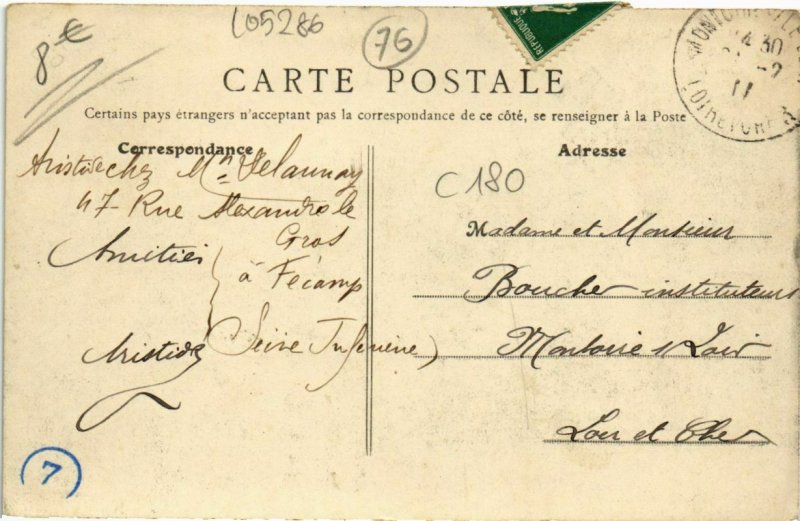 8 €
L05286
76
REPUBLIQUE
MONTOIRE
14 30
LOIR ET CHER
CARTE POSTALE
Certains pays étrangers n'acceptant pas la correspondance de ce côté, se renseigner à la Poste
Correspondance
Aristide chez Mr Delaunay
47 Rue Alexandre le
Gros
Amitiés
à Fécamp
Aristide
(Seine Inférieure)
Adresse
C180
Madame et Monsieur
Boucher instituteurs
Montoire s/ Loir
Loir et Cher
7